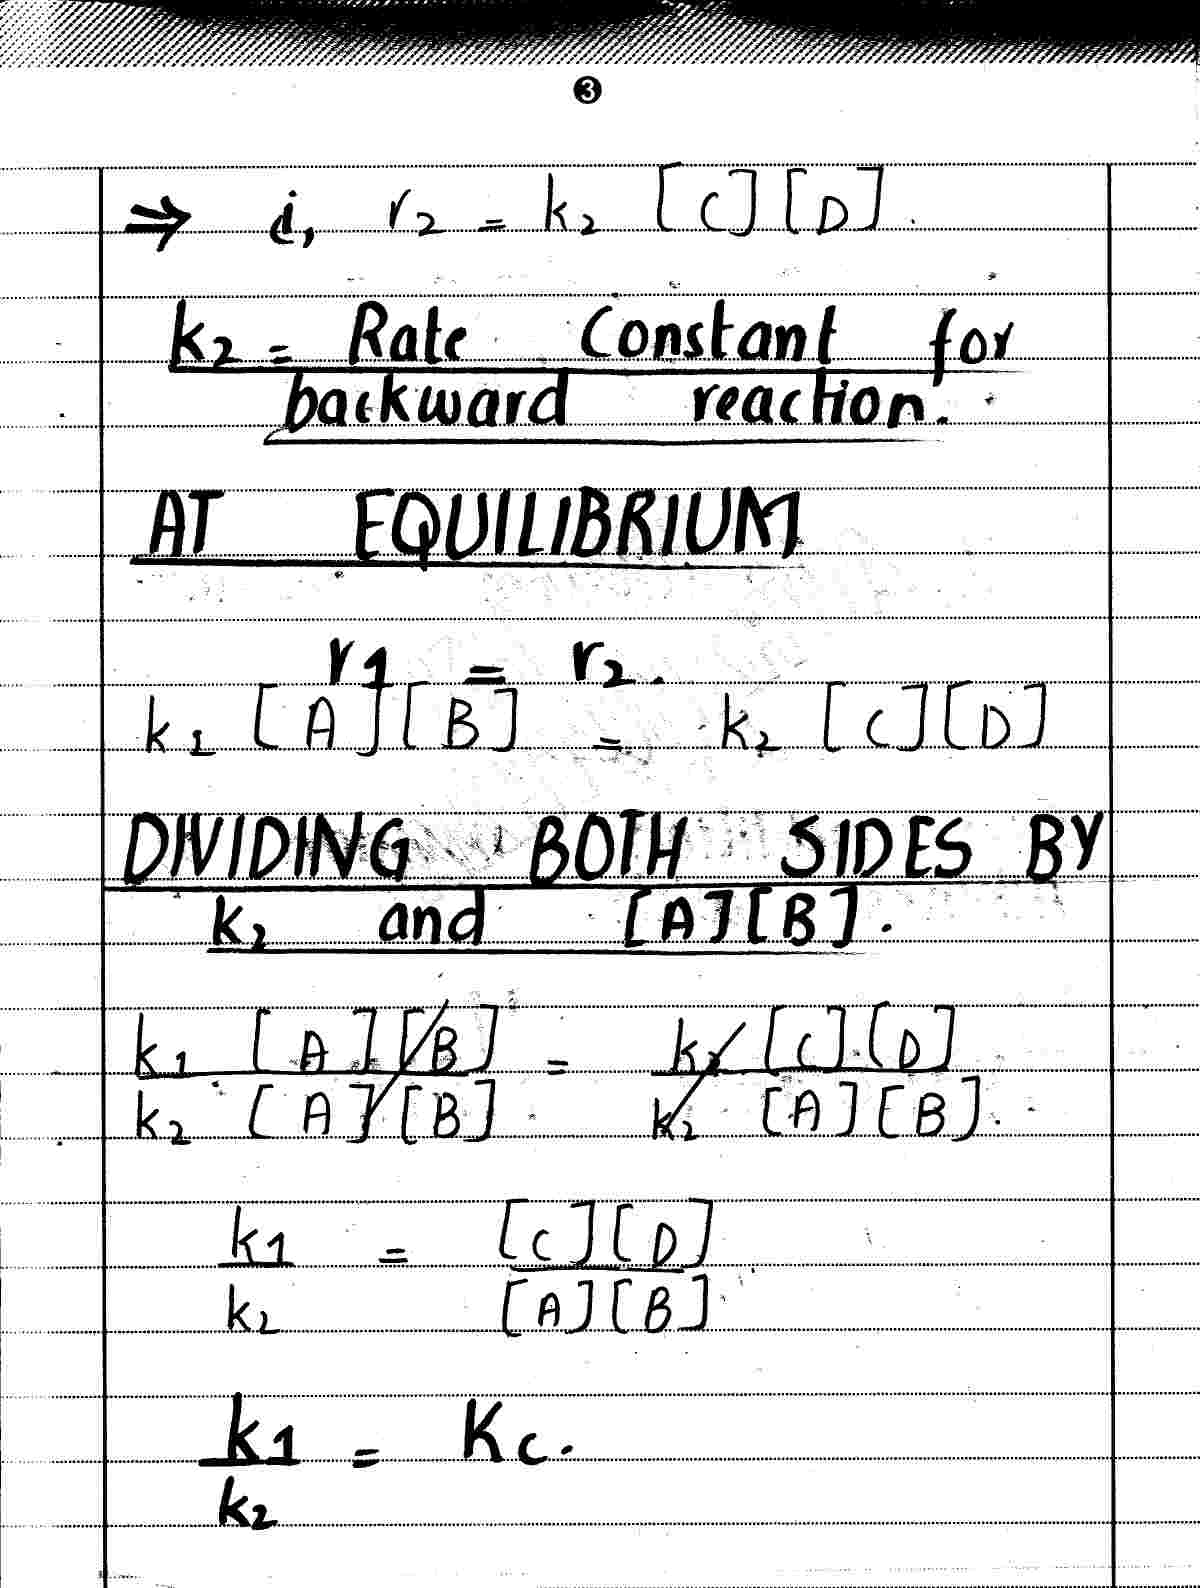 3
⇒ i, r₂ = k₂ [C][D].
k₂ = Rate Constant for
backward reaction.
AT EQUILIBRIUM
r₁ = r₂.
k₁ [A][B] = k₂ [C][D]
DIVIDING BOTH SIDES BY
k₂ and [A][B].
k₁ [A][B] = k₂ [C][D]
k₂ [A][B] k₂ [A][B].
k₁ = [C][D]
k₂ [A][B]
k₁ = Kc.
k₂